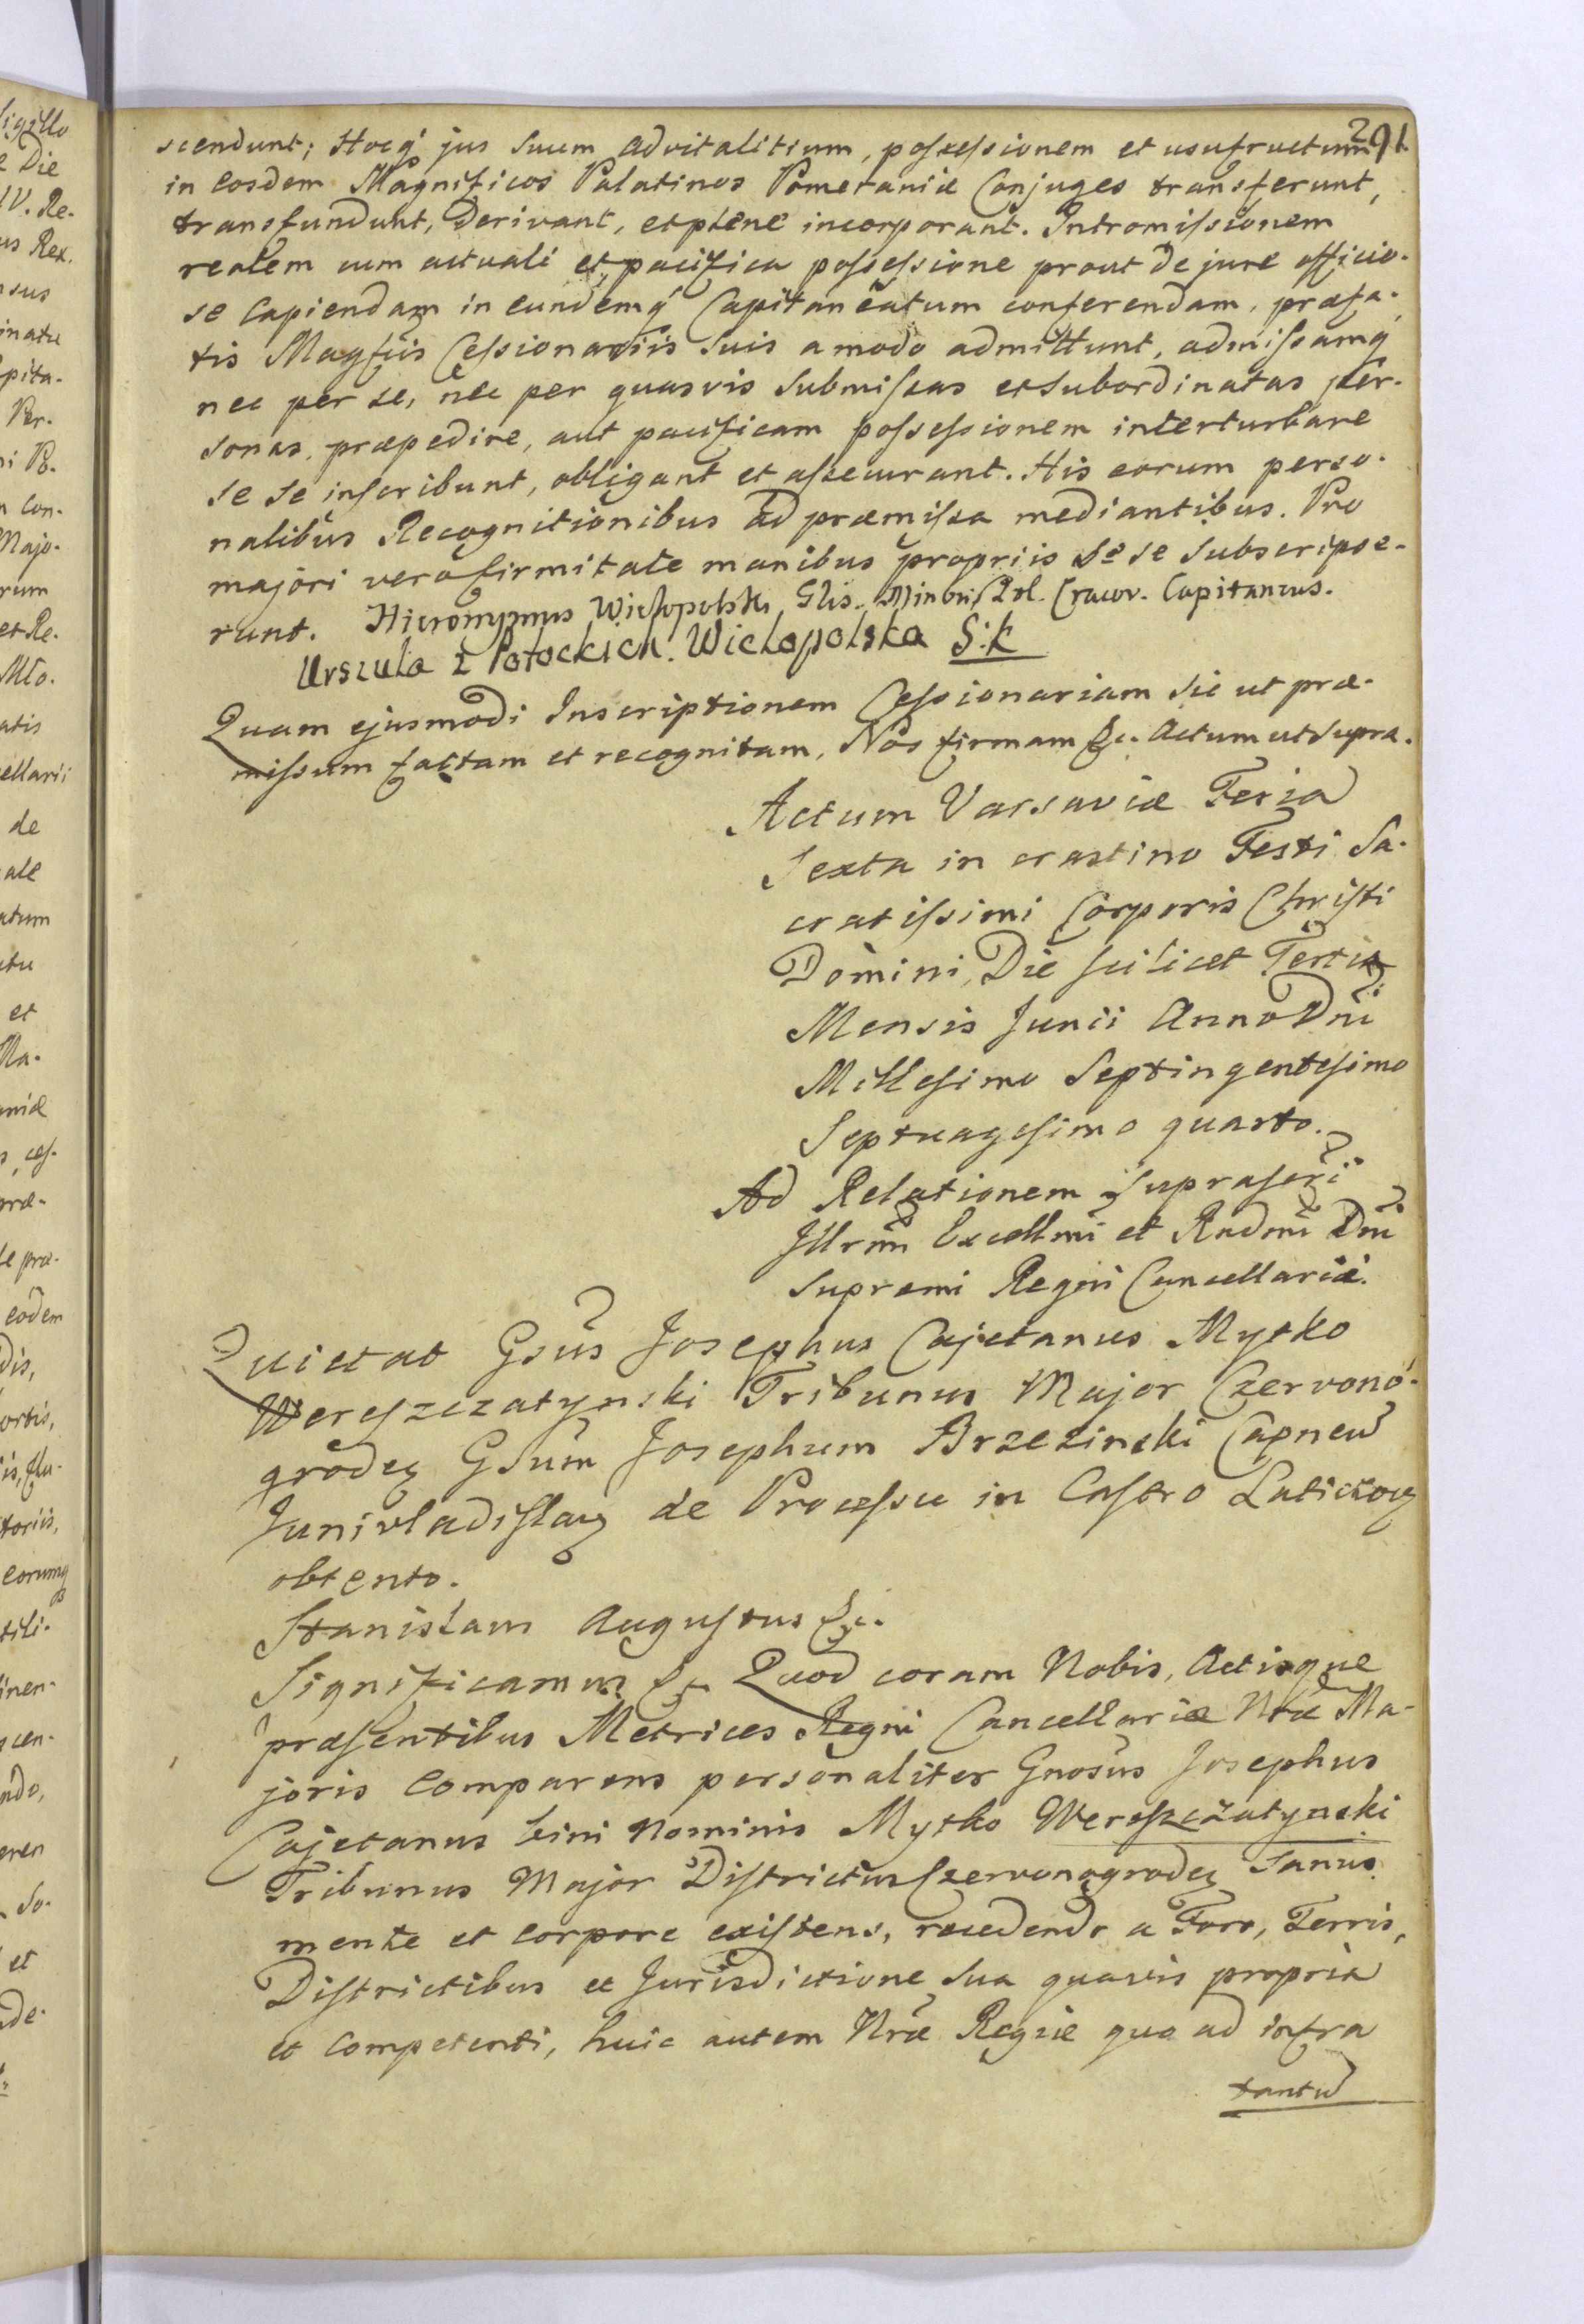 291.
scendunt; Hocq́ jus suum advitalitium, possessionem et usufructum
in eosdem Magnificos Palatinos Pomeraniæ Conjuges transferunt,
transfundunt, derivant, et plene incorporant. Intromissionem
realem cum actuali et pacifica possessione prout de jure officio-
se capiendam in eundemq́ Capitaneatum conferendam, præfa-
tis Magfcis Cessionariis suis amodo admittunt, admissamq́
nec per se, nec per quasvis submissas et subordinatas per-
sonas, præpedire, aut pacificam possessionem interturbare
se se inscribunt, obligant et assecurant. His eorum perso-
nalibus Recognitionibus ad præmissa mediantibus. Pro
majori vero firmitate manibus propriis se se subscripse-
runt. Hieronymus Wielopolski, Glis. Cracov. Capitaneus.
Urszula z Potockich. Wielopolska S:K
Quam ejusmodi Inscriptionem Cessionariam sic ut præ-
missum factam et recognitam, Nos firmam &c. Actum ut supra.
Actum Varsaviæ Feria
Sexta in crastino Festi Sa-
cratissimi Corporis Christi
Domini, Die scilicet Tertia
Mensis Junii Anno Dni
Millesimo Septingentesimo
Septuagesimo quarto.
Ad Relationem suprascri
Illrmi Excellmi et Rndmi Dni
Supremi Regni Cancellarii.
Quietat Gsus Josephus Cajetanus Mytko
Wereszczatynski Tribunus Major Czervono-
grodeң Gsum Josephum Brzezinski Capneu
Junivladislaң de Processu in Castro Laticzoң
obtento.
Stanislaus Augustus &c.
Significamus &c Quod coram Nobis, Actisque
præsentibus Metrices Regni Cancellariæ Nræ Ma-
joris comparens personaliter Gnosus Josephus
Cajetanus bini Nominis Mytko Wereszczatynski
Tribunus Major Districtus Czervonogrodeң Sanus
mente et corpore existens, recedendo a Foro, Terris,
Districtibus et Jurisdictione sua quavis propria
et competenti, huic autem Nræ Regiæ quo ad infra
tantu